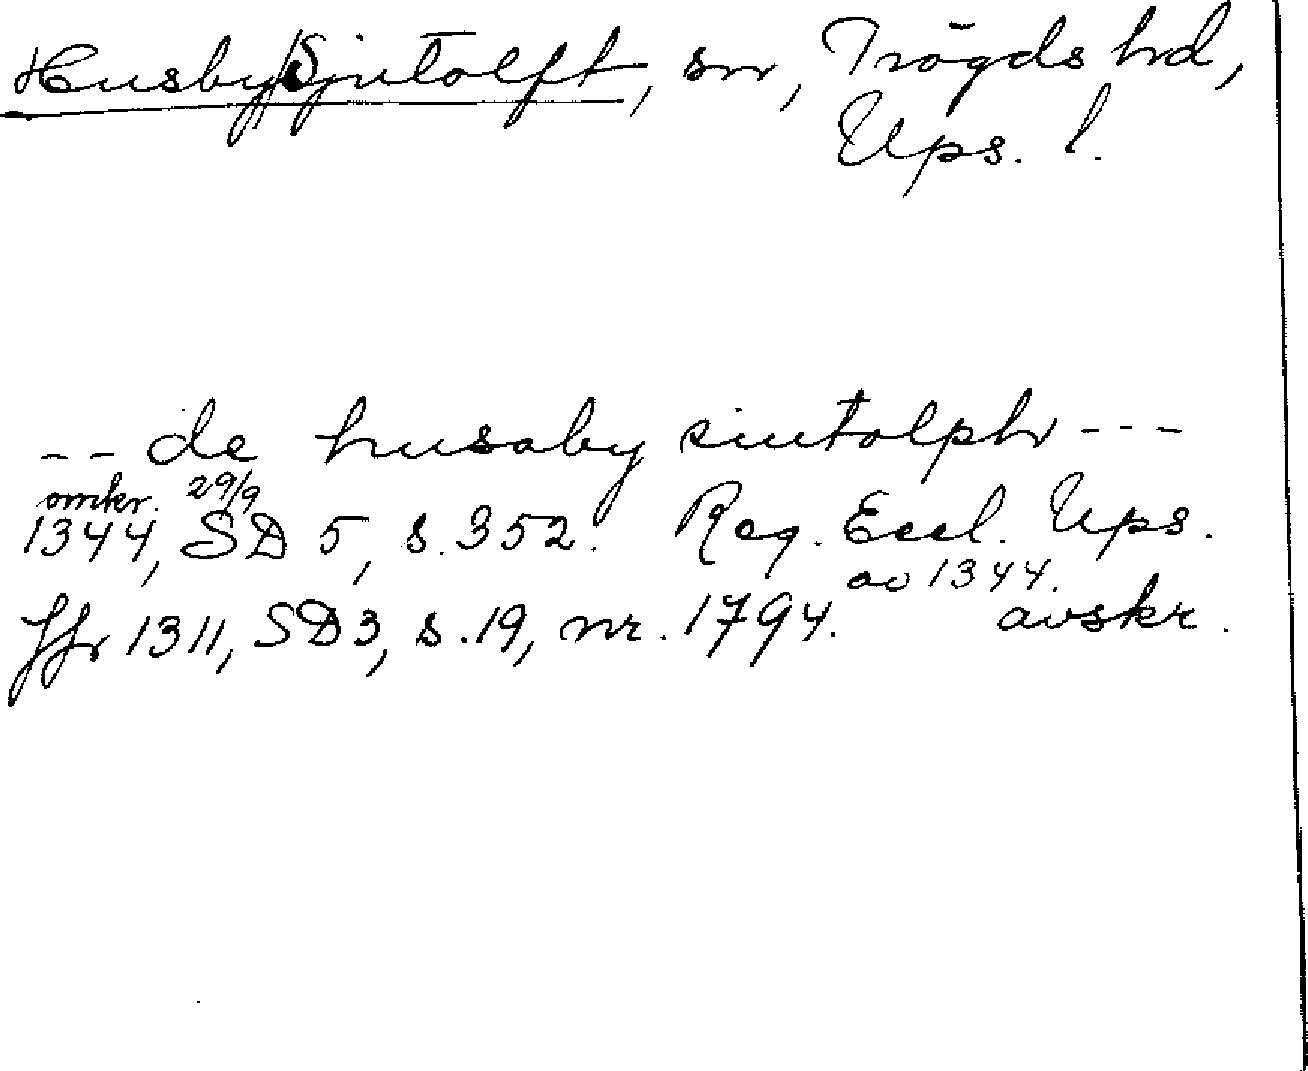 Husby/Sjutolft, sn, Trögds hd,
Ups. l.
-- de husaby siutolph ---
omkr. 29/9
1344, SD 5, s. 352. Reg. Eccl. Ups.
av 1344.
Jfr 1311, SD 3, s. 19, nr. 1794. avskr.